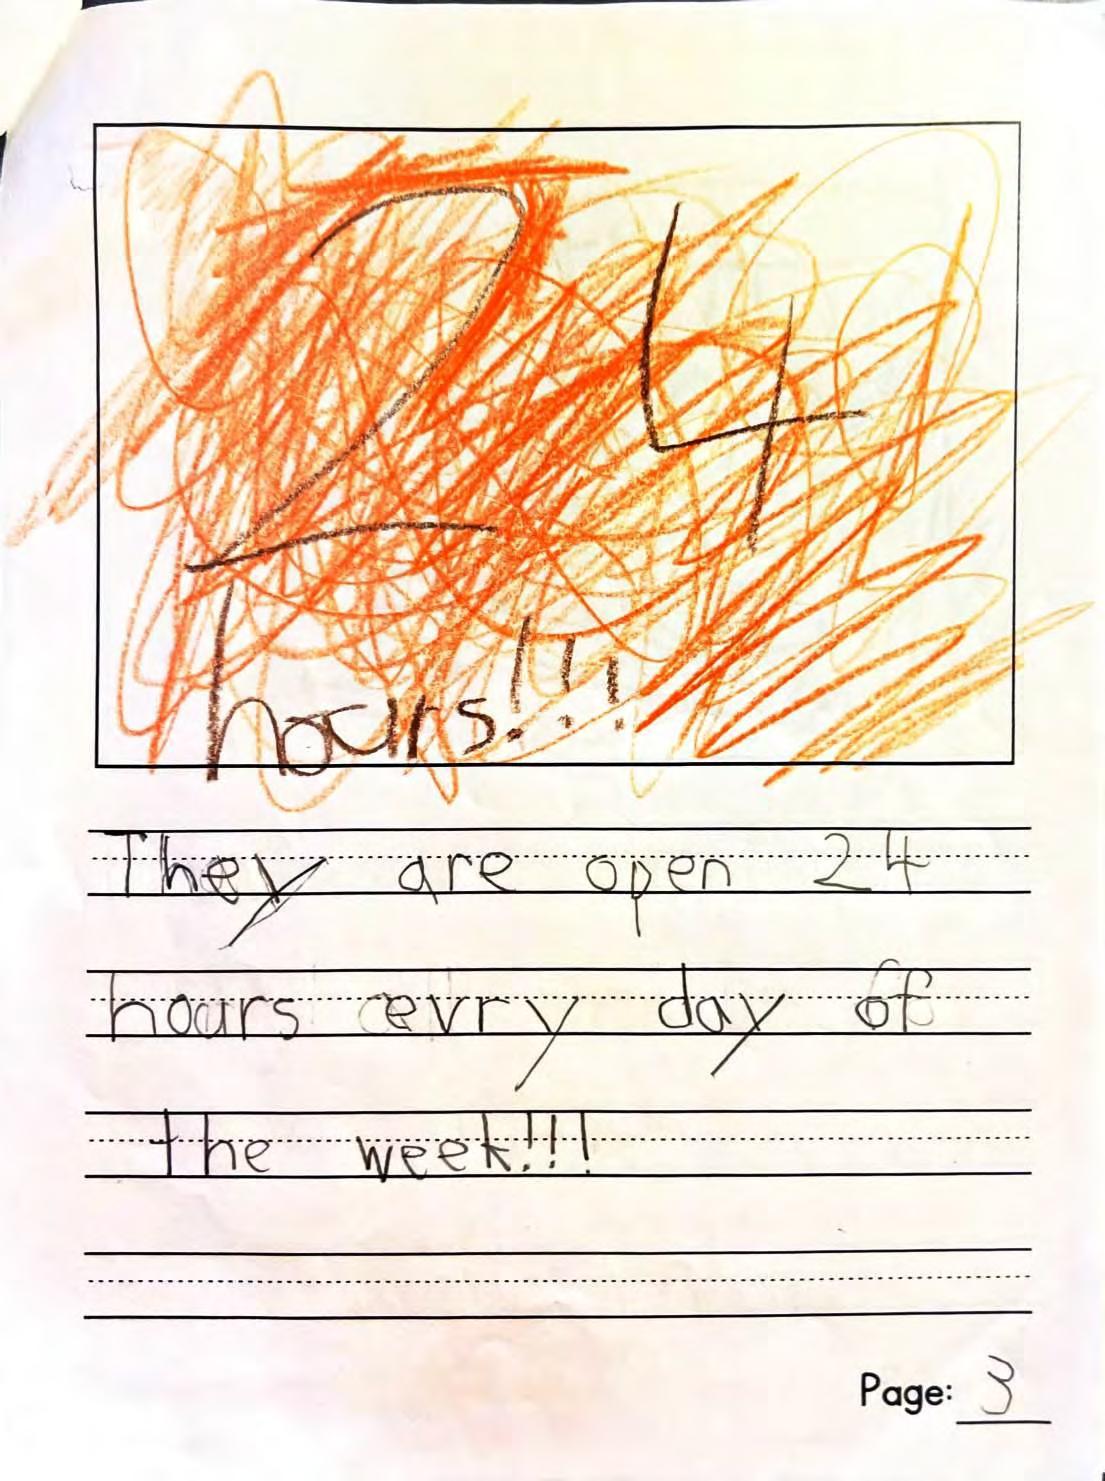 24
hours!!!
They are open 24
hours evry day of
the week!!!
Page: 3